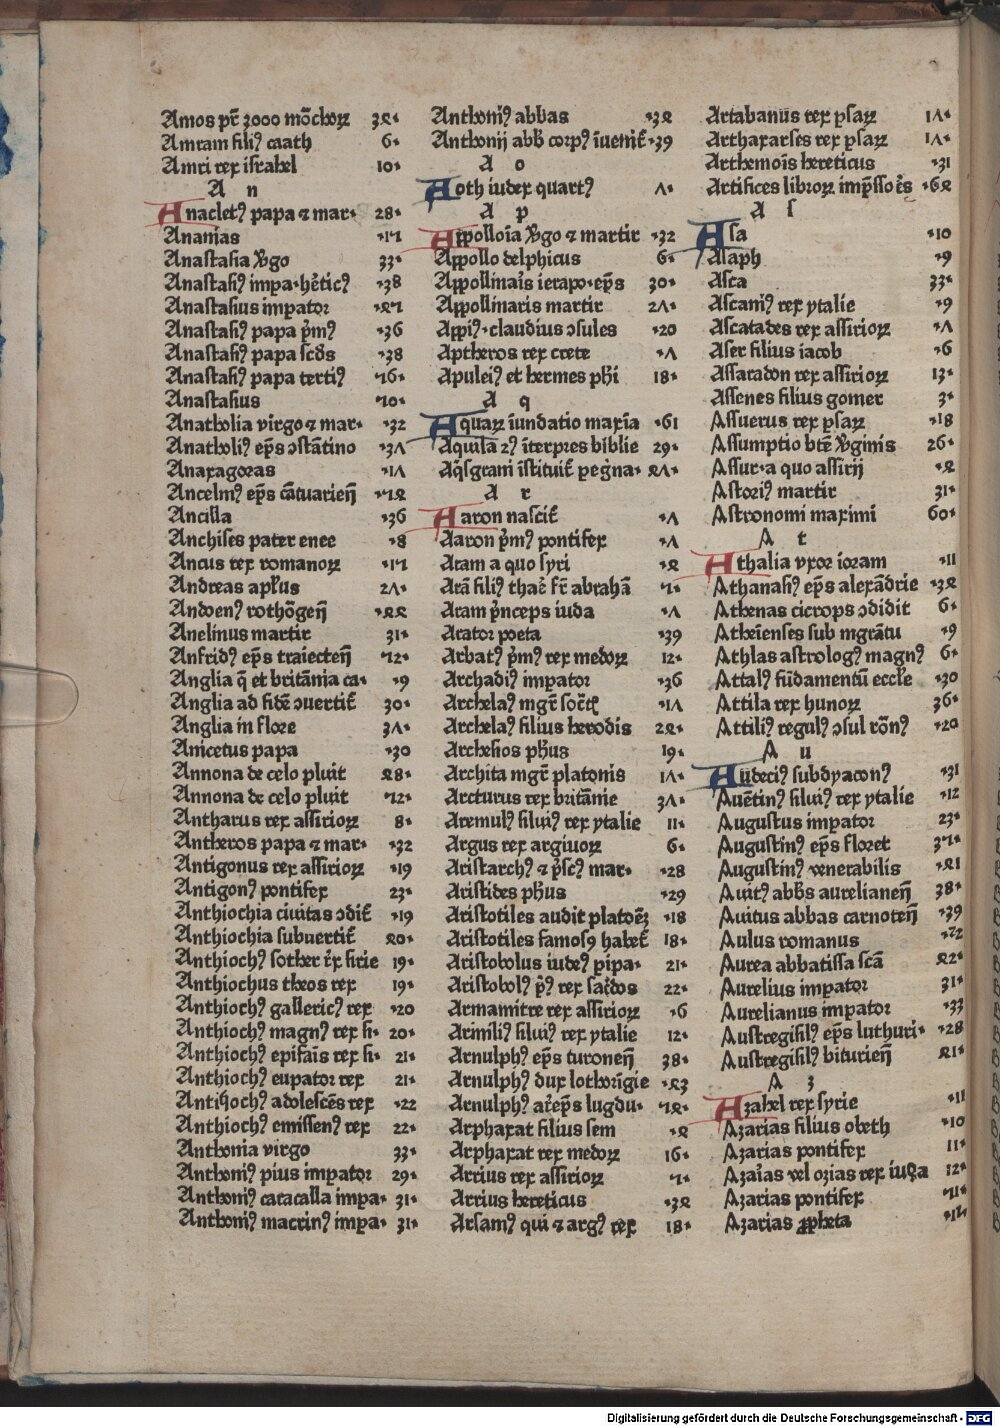 Amos pr̄ 3000 mōchoꝝ 3ꝝ·
Amram filiꝰ caath 6·
Amri rex israhel 10·
A n
Anacletꝰ papa ⁊ mar· 28·
Ananias
Anastasia ꝟgo 33·
Anastasiꝰ impa·hētic̄ꝰ ·38
Anastasius imꝑator
Anastasiꝰ papa p̄mꝰ ·36
Anastasiꝰ papa scd̄s ·38
Anastasiꝰ papa tertiꝰ
Anastasius
Anatholia virgo ⁊ mar· ·32
Anatholiꝰ ep̄s ↄstātino ·3Λ
Anaxagoras ·1Λ
Ancelmꝰ ep̄s cātuarien̄
Ancilla ·36
Anchises pater enee ·8
Ancus rex romanoꝝ
Andreas apl̄us 2Λ·
Andoenꝰ rothōgen̄ ·ջջ
Anelinus martir 31·
Anfridꝰ ep̄s traiecten̄
Anglia q̄ et britānia ca· ·9
Anglia ad fidē ↄuertit̄ 30·
Anglia in flore 3Λ·
Anicetus papa ·30
Annona de celo pluit ջ8·
Annona de celo pluit
Antharus rex assirioꝝ 8·
Antheros papa ⁊ mar· ·32
Antigonus rex assirioꝝ ·19
Antigonꝰ pontifex 23·
Anthiochia ciuitas ↄdit̄ ·19
Anthiochia subuertit̄ ջ0·
Anthiochꝰ sother r̄x sirie 19·
Anthiochus theos rex 19·
Anthiochꝰ gallericꝰ rex ·20
Anthiochꝰ magnꝰ rex si· 20·
Anthiochꝰ epifāis rex si· 21·
Anthiochꝰ eupator rex 21·
Antiqochꝰ adolescēs rex ·22
Anthiochꝰ emissenꝰ rex 22·
Anthonia virgo 33·
Anthoniꝰ pius imꝑator 29·
Anthoniꝰ caracalla imꝑa· 31·
Anthoniꝰ macrinꝰ imꝑa· 31·
Anthoniꝰ abbas ·3ջ
Anthonij abb̄ corpꝰ īuenit̄ ·39
A o
Aoth iudex quartꝰ Λ·
A p
Appolloīa ꝟgo ⁊ martir ·32
Appollo delphicus 6·
Appollinaīs ierapo·ep̄s 30·
Appollinaris martir 2Λ·
Appiꝰ·claudius ↄsules ·20
Aptheros rex crete ·Λ
Apuleiꝰ et hermes ph̄i 18·
A q
Aquaꝝ īundatio maxīa ·61
Aquila 2ꝰ īterpres biblie 29·
Aq̄sgrani īstituit̄ pegr̄na· ջΛ·
A r
Aaron nascit̄ ·Λ
Aaron p̄mꝰ pontifex ·Λ
Aram a quo syri ·ջ
Arā filiꝰ tharē fr̄ abrahā
Aram p̄nceps iuda ·Λ
Arator poeta ·39
Arbatꝰ p̄mꝰ rex medoꝝ 12·
Archadiꝰ imꝑator ·36
Archelaꝰ mgr̄ socr̄tꝭ ·1Λ
Archelaꝰ filius herodis 2ջ·
Archesios ph̄us 19·
Archita mgr̄ platonis 1Λ·
Arcturus rex britānie 3Λ·
Aremulꝰ siluiꝰ rex ytalie 11·
Argus rex argiuoꝝ 6·
Aristarchꝰ ⁊ p̄scꝰ mar· ·28
Aristides ph̄us ·29
Aristotiles audit platoēꝫ ·18
Aristotiles famosꝰ habet̄ 18·
Aristobolus iudeꝰ pipa· 21·
Aristobolꝰ p̄ꝰ rex sac̄dos 22·
Armamitre rex assirioꝝ ·6
Arimiliꝰ siluiꝰ rex ytalie 12·
Arnulphꝰ ep̄s turonen̄ 38·
Arnulphꝰ dux lothorīgie ·ջ3
Arnulphꝰ ar̄ep̄s lugdu·
Arphaxat filius sem ·ջ
Arphaxat rex medoꝝ 16·
Arrius rex assirioꝝ
Arrius hereticus ·3ջ
Arsamꝰ qui ⁊ argꝰ rex 18·
Artabanus rex ꝑsaꝝ 1Λ·
Artharxarses rex ꝑsaꝝ 1Λ·
Arthemoīs hereticus ·31
Artifices libroꝝ imp̄ssorēs ·6ջ
A s
Asa ·10
Asaph ·9
Asca 33·
Ascaniꝰ rex ytalie ·9
Ascatades rex assirioꝝ ·Λ
Aser filius iacob ·6
Assaradon rex assirioꝝ 13·
Assenes filius gomer 3·
Assuerus rex ꝑsaꝝ ·18
Assumptio btē ꝟginis 26·
Assur·a quo assirij ·ջ
Astoriꝰ martir 31·
Astronomi maximi 60·
A t
Athalia vxor ioram ·11
Athanasiꝰ ep̄s alexādrie ·3ջ
Athenas cicrops ↄdidit 6·
Atheīenses sub mgrātu ·9
Athlas astrologꝰ magnꝰ 6·
Attalꝰ fūdamentū eccl̄e ·30
Attila rex hunoꝝ 36·
Attiliꝰ regulꝰ ↄsul rōnꝰ ·20
A u
Audeciꝰ subdyaconꝰ ·31
Auētinꝰ siluiꝰ rex ytalie ·12
Augustus imꝑator 23·
Augustinꝰ ep̄s floret
Augustinꝰ venerabilis ·ջ1
Auitꝰ abb̄s aurelianen̄ 38·
Auitus abbas carnoten̄ ·39
Aulus romanus
Aurea abbatissa scā ջ2·
Aurelius imꝑator 31·
Aurelianus imꝑator ·33
Austregisilꝰ ep̄s luthuri· ·28
Austregisilꝰ biturien̄ ջ1·
A z
Azahel rex syrie ·11
Azarias filius obeth ·10
Azarias pontifex 11·
Azaīas vel ozias rex iuda 12·
Azarias pontifex
Azarias ꝓpheta
Digitalisierung gefördert durch die Deutsche Forschungsgemeinschaft - DFG